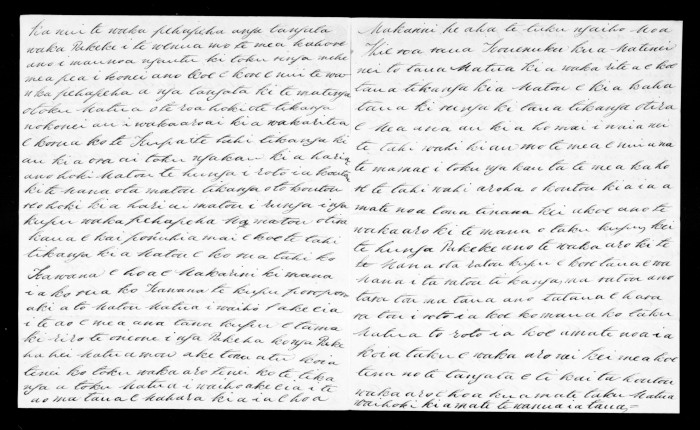 Ka nui te waka pehapeha a nga tangata
waka Pakeke i te wenua mo te mea kahore
ano i maunoa ngautu ki toku
mea pea i konei ano koe e koe e nui te wa
nka pehapeha a nga tangata ki te matenga
o toku Matua o te roa hoki o te tikanga
no konei au i wakaaroai kia wakaritea
e koma ko te tahi tikanga ki
au kia ora ai toku ngakau kia hari
ano hoki Matou te hunga i roto i a koutou
ki te hana o ta matou tikanga o to koutou
hoki kia hari ai matou i runga i nga
kupu waka pehapeha a matou
kaua e kai ponuhia mai e koe te tahi
tikanga kia Matou e ko ma tahi ko
Kawana e hoa e Makarini ki mana
i a ko ma ko Kawana te kupu poropo
aki a to Matou Matua i waiho ake eia
i te ao e mea ana tana kupu e tama
ki riro te oneone i nga Pakeha ko nga Pake
ha hei matua mou ake tonu atu koia
tenei ko toku wakaaro tenei ko te tika
nga a toku Matua i waiho ake eia i te
ao ma taua e mahara kia ia e hoa
Makarini he aha te tuku ngaiho Hoa
Kie noa raua Kouenuku kua Matenei
nei to taua Matua kia waka rite ai koe
taua tikanga kia Matou e kia kaha
taua ki runga ki taua tikanga otira
e Mea ana au kia ho mai i naia nei
te tahi wahi ki au mo te mea e nui ana
te mamae i toku ngakau ta te mea kaho
re te tahi wahi aroha o koutou kia ia a
mate noa tona tinana kei a koe ano te
wakaaro ki te mana o taku kupu, kei
te hunga Pakeke ano te waka aro ki te
Mana o ta ratou kupu e koe taua e wa
hana i ta ratou tikanga, ma ratou ano
tara tou ma taua ano tataua e hara
ra tou i roto ia koe ko maua ko taku
Matua to roto ia koe a mate noa ia
koia taku e waka aro nei kei mea koe
tena no te tangata e ti kai ta koutou
wakaaro e hoa kua mate taku Matua
waihoki kia mate te wanua ia taua